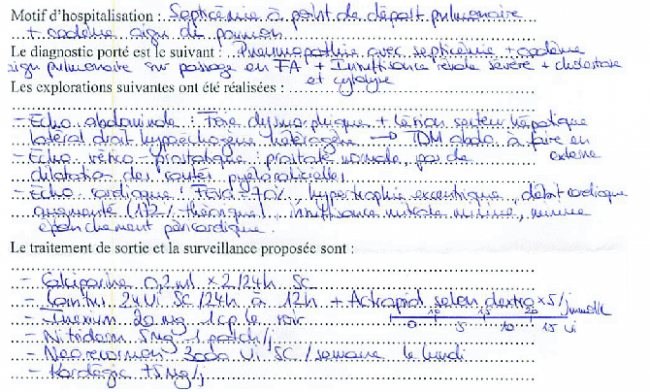 Motif d'hospitalisation : Septicémie à point de départ pulmonaire
+ oedème aigu du poumon
Le diagnostic porté est le suivant : Pneumopathie avec septicémie + oedème
aigu pulmonaire sur passage en FA + Insuffisance rénale sévère + cholestase
et cytolyse
Les explorations suivantes ont été réalisées :
- Echo abdominale : Foie dysmorphique + lésion secteur hépatique
latéral droit hypoéchogène hétérogène → TDM abdo à faire en
externe
- Echo vésico-prostatique : prostate normale, pas de
dilatation des cavités pyélocalicielles
- Echo cardiaque : FEVG = 70%, hypertrophie excentrique, débit cardiaque
augmenté (112% théorique), insuffisance mitrale minime, minime
épanchement péricardique.
Le traitement de sortie et la surveillance proposée sont :
- Calciparine 0,2 ml x 2/24h SC
- Lantus 24 Ui SC/24h à 12h + Actrapid selon dextro x 5/j
10 15 20 mmol/l
0 5 10 15 Ui
- Inexium 20 mg 1 cp le soir
- Nitriderm 5mg 1 patch/j
- Neorecormon 3000 Ui SC/semaine le lundi
- Kardégic 75 mg/j